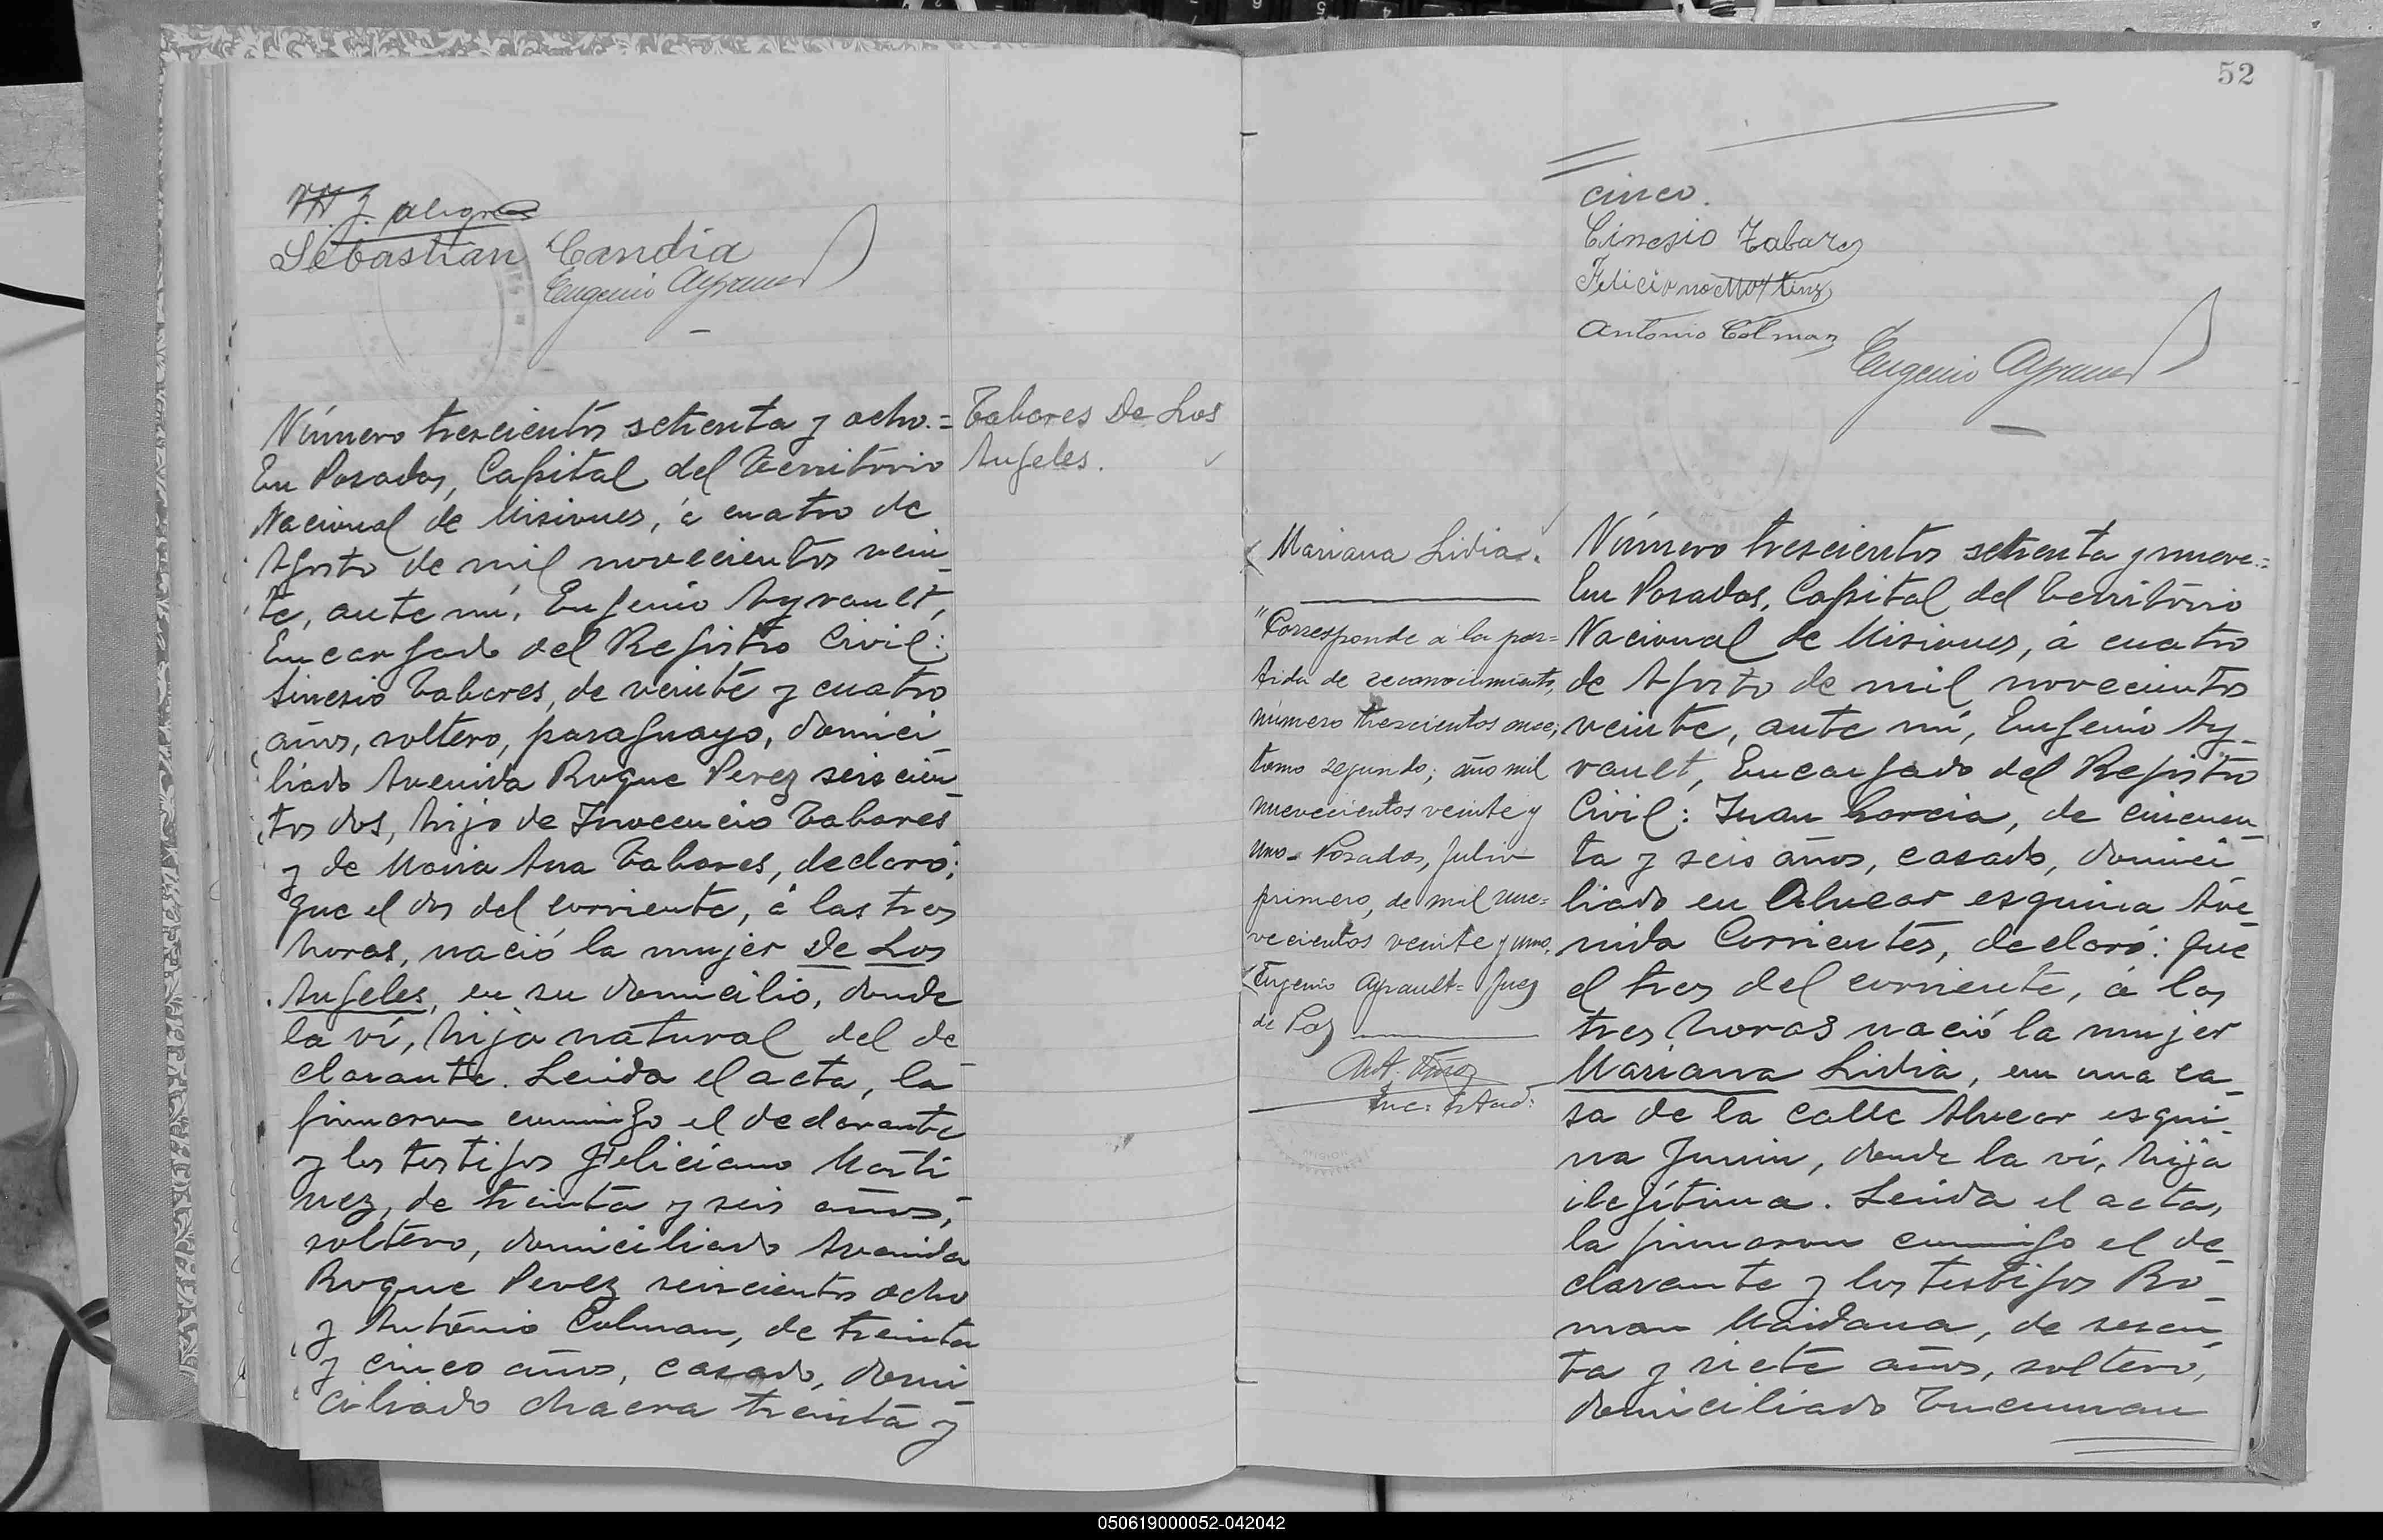 Sebastian Candia
Eugenio Ayrault
Número trescientos setenta y ocho.=
En Posadas, Capital del Territorio
Nacional de Misiones, á cuatro de
Agosto de mil novecientos vein_
te, ante mí, Eugenio Ayrault,
Encargado del Registro Civil:
Sinesio Tabares, de veinte y cuatro
años, soltero, paraguayo, domici_
liado Avenida Roque Perez seis cien_
tos dos, hijo de Inocencio Tabares
y de Maria Ana Tabares, declaró:
que el dos del corriente, á las tres
horas, nació la mujer De Los
Angeles, en su domicilio, donde
la ví, hija natural del de_
clarante. Leida el acta, la
firmaron conmigo el declarante
y los testigos Feliciano Marti_
nez, de treinta y seis años,
soltero, domiciliado Avenida
Roque Perez seiscientos ocho
y Antonio Colman, de treinta
y cinco años, casado, domi_
ciliado chacra treinta y
Tabares De Los
Angeles.
52
cinco.
Cinesio Tabarez
Feliciano Martinz
Antonio Colman
Eugenio Ayrault
Mariana Lidia.
"Corresponde á la par=
tida de reconocimiento,
número trescientos once,
tomo segundo; año mil
nuevecientos veinte y
uno. Posadas, Julio
primero, de mil nue=
vecientos veinte y uno.
Eugenio Ayrault= Juez
de Paz
Número trescientos setenta y nueve.=
En Posadas, Capital del Territorio
Nacional de Misiones, á cuatro
de Agosto de mil novecientos
veinte, ante mí, Eugenio Ay_
rault, Encargado del Registro
Civil: Juan Garcia, de cincuen_
ta y seis años, casado, domici_
liado en Alvear esquina Ave_
nida Corrientes, declaró: que
el tres del corriente, á las
tres horas nació la mujer
Mariana Lidia, en una ca_
sa de la calle Alvear esqui_
na Junin, donde la ví, hija
ilegítima. Leida el acta,
la firmaron conmigo el de_
clarante y los testigos Ro_
man Maidana, de sesen_
ta y siete años, soltero,
domiciliado Tucuman
050619000052-042042